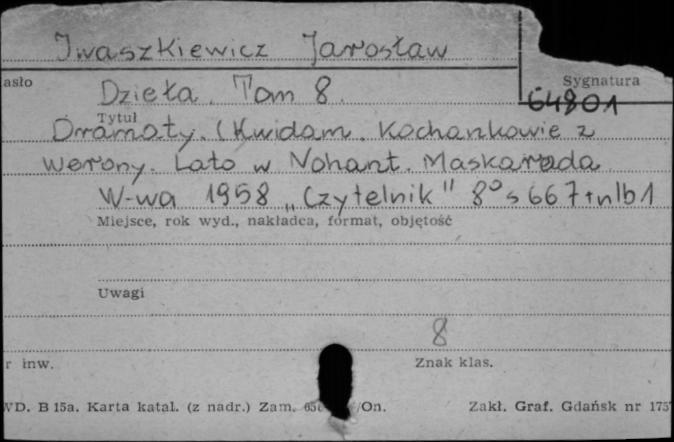 Iwaszkiewicz Jarosław
asło
Sygnatura
64801
Dzieła. Tom 8.
Tytuł
Dramaty. (Kwidam. Kochankowie z
Werony. Lato w Nohant. Maskarada
W-wa 1958 „Czytelnik" 8° s 667+nlb1
Miejsce, rok wyd., nakładca, format, objętość
Uwagi
8
r inw.
Znak klas.
WD. B 15a. Karta katal. (z nadr.) Zam. /On.
Zakł. Graf. Gdańsk nr 175